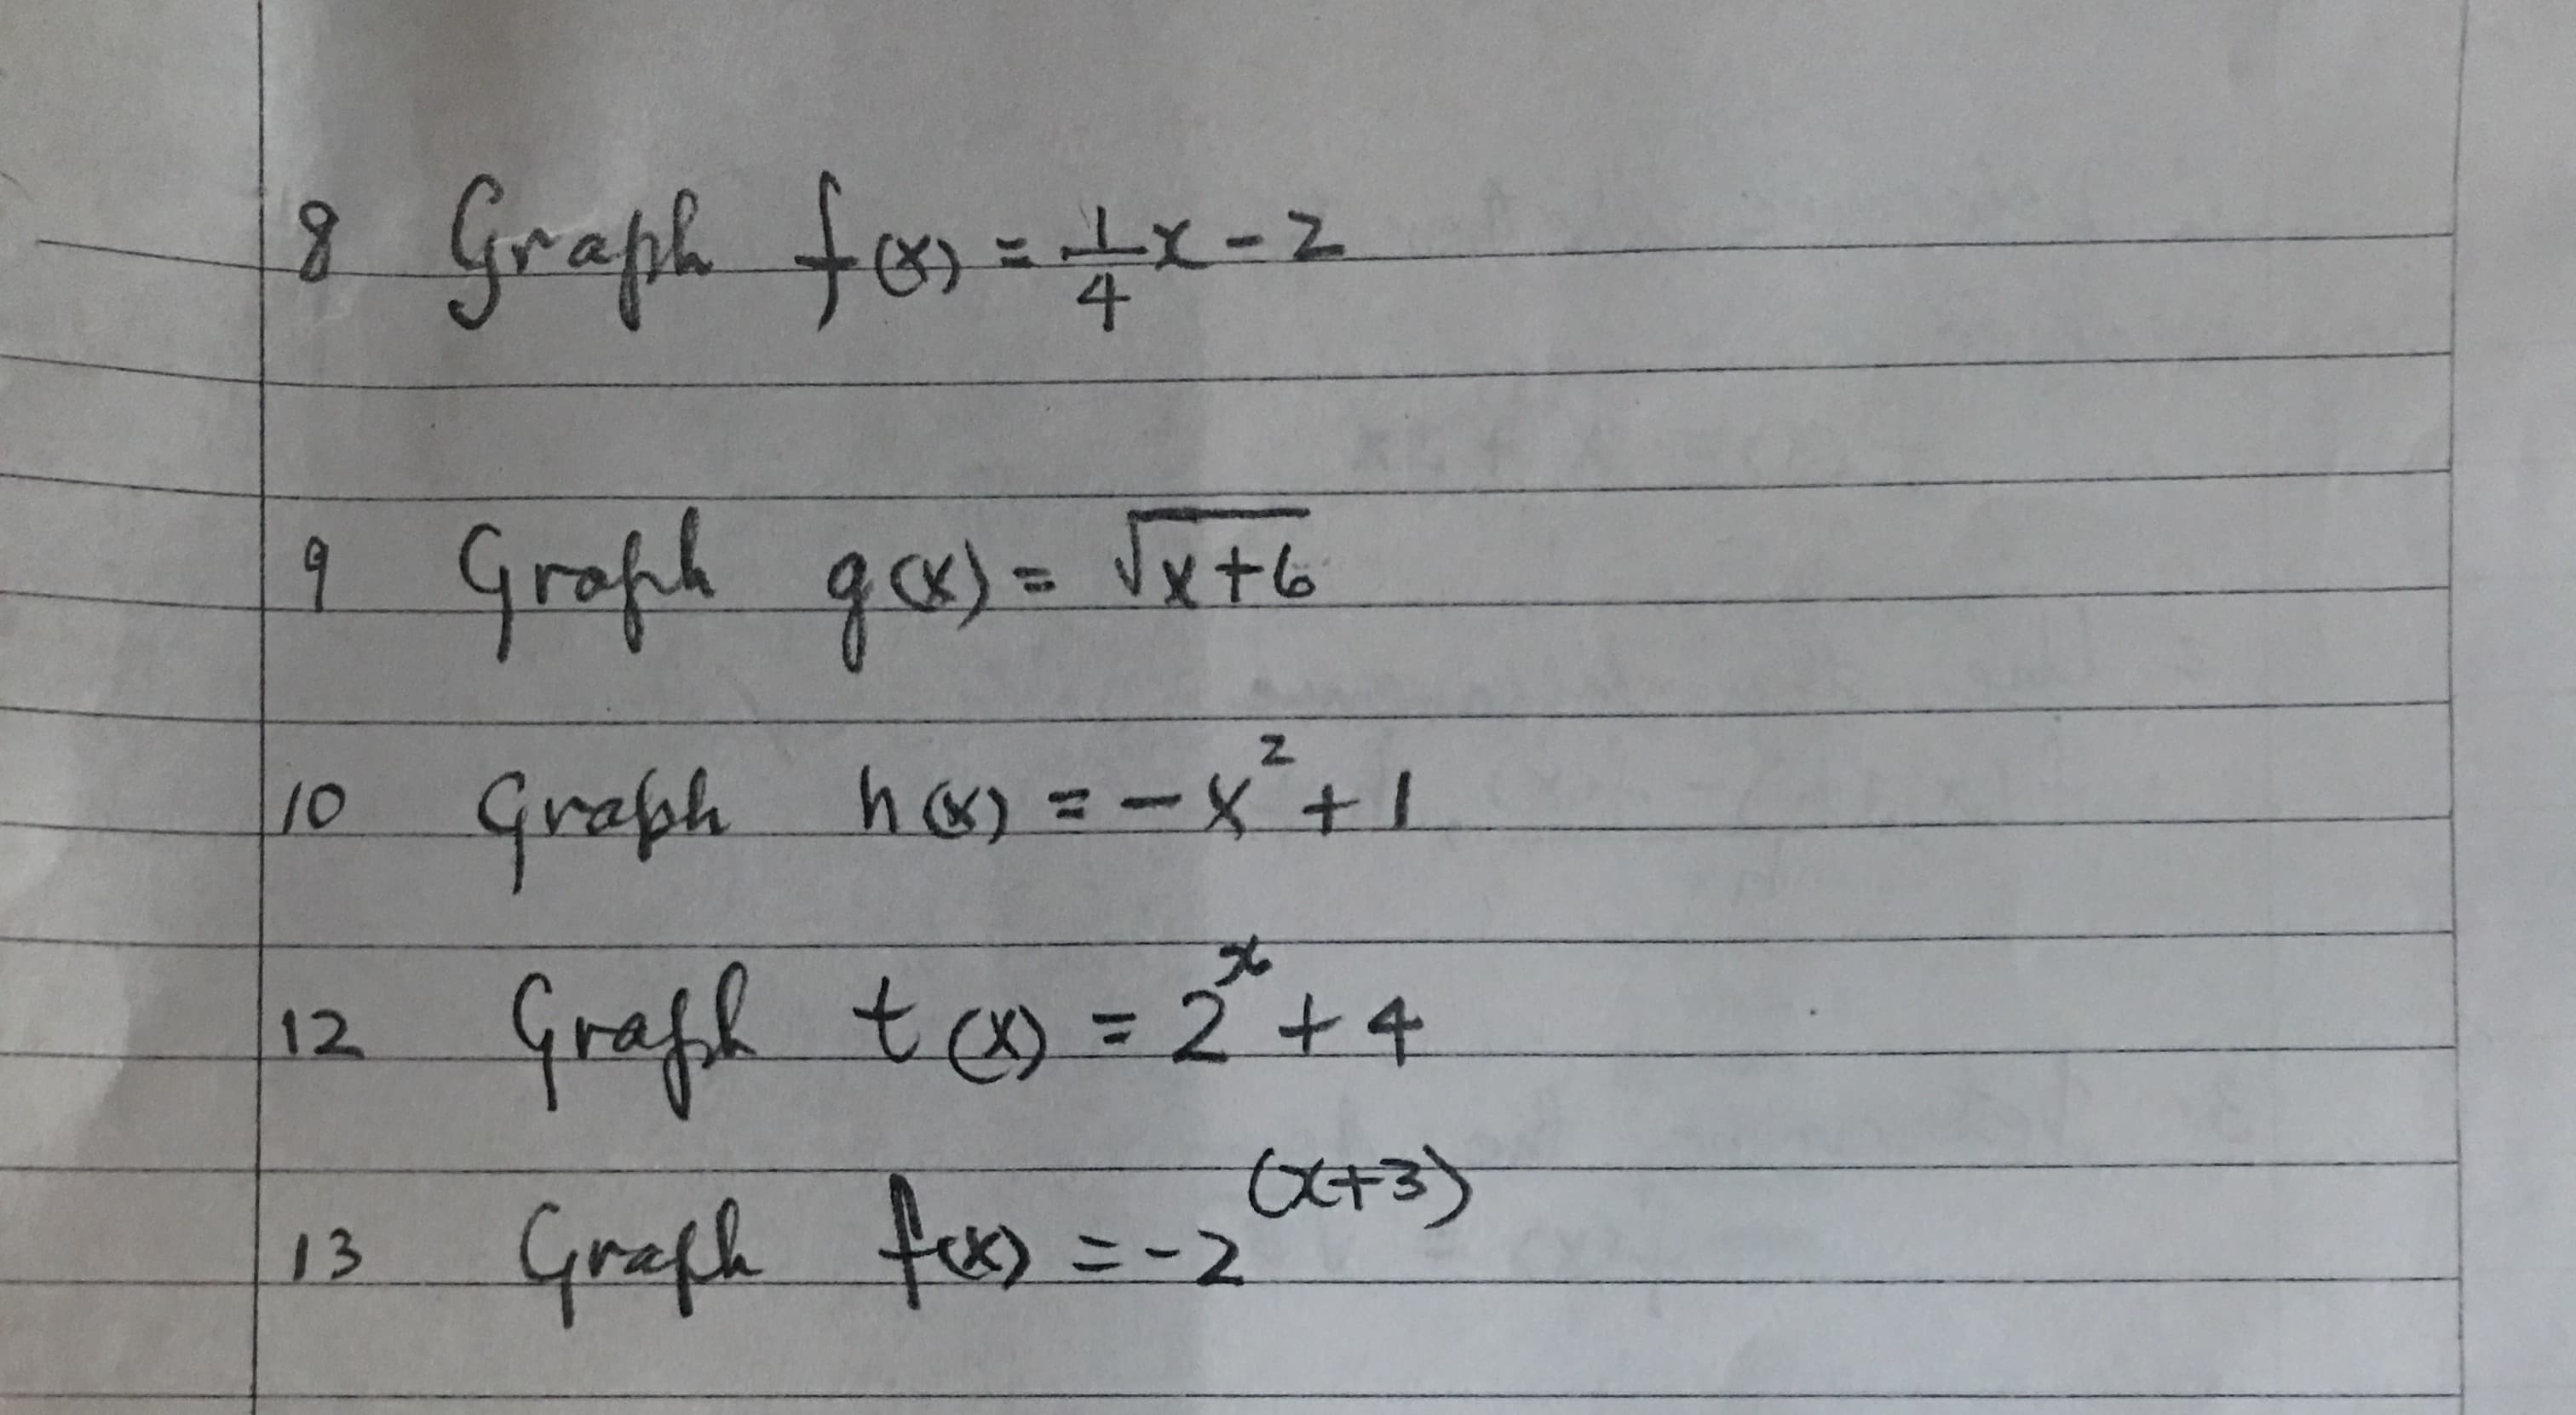 8 Graph f(x) = 1/4 x - 2
9 Graph g(x) = √(x+6)
10 Graph h(x) = -x² + 1
12 Graph t(x) = 2ˣ + 4
13 Graph f(x) = -2⁽ˣ⁺³⁾